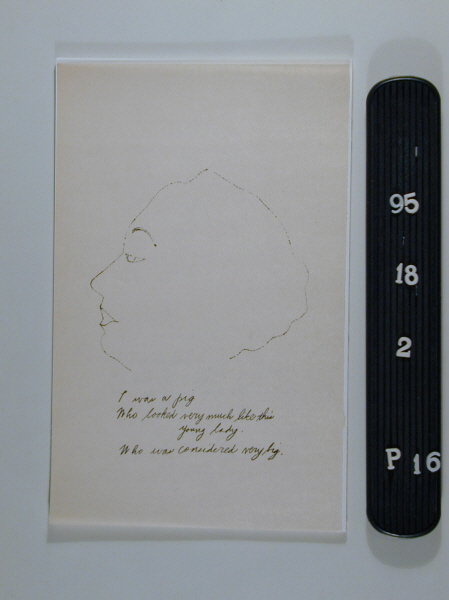 I was a pig
Who looked very much like this
young lady.
Who was considered very big.
95
18
2
P 16